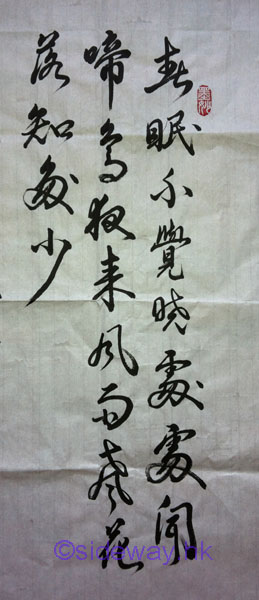 春眠不覺晓處處闻
啼鳥夜来风雨聲花
落知多少
©sideway.hk